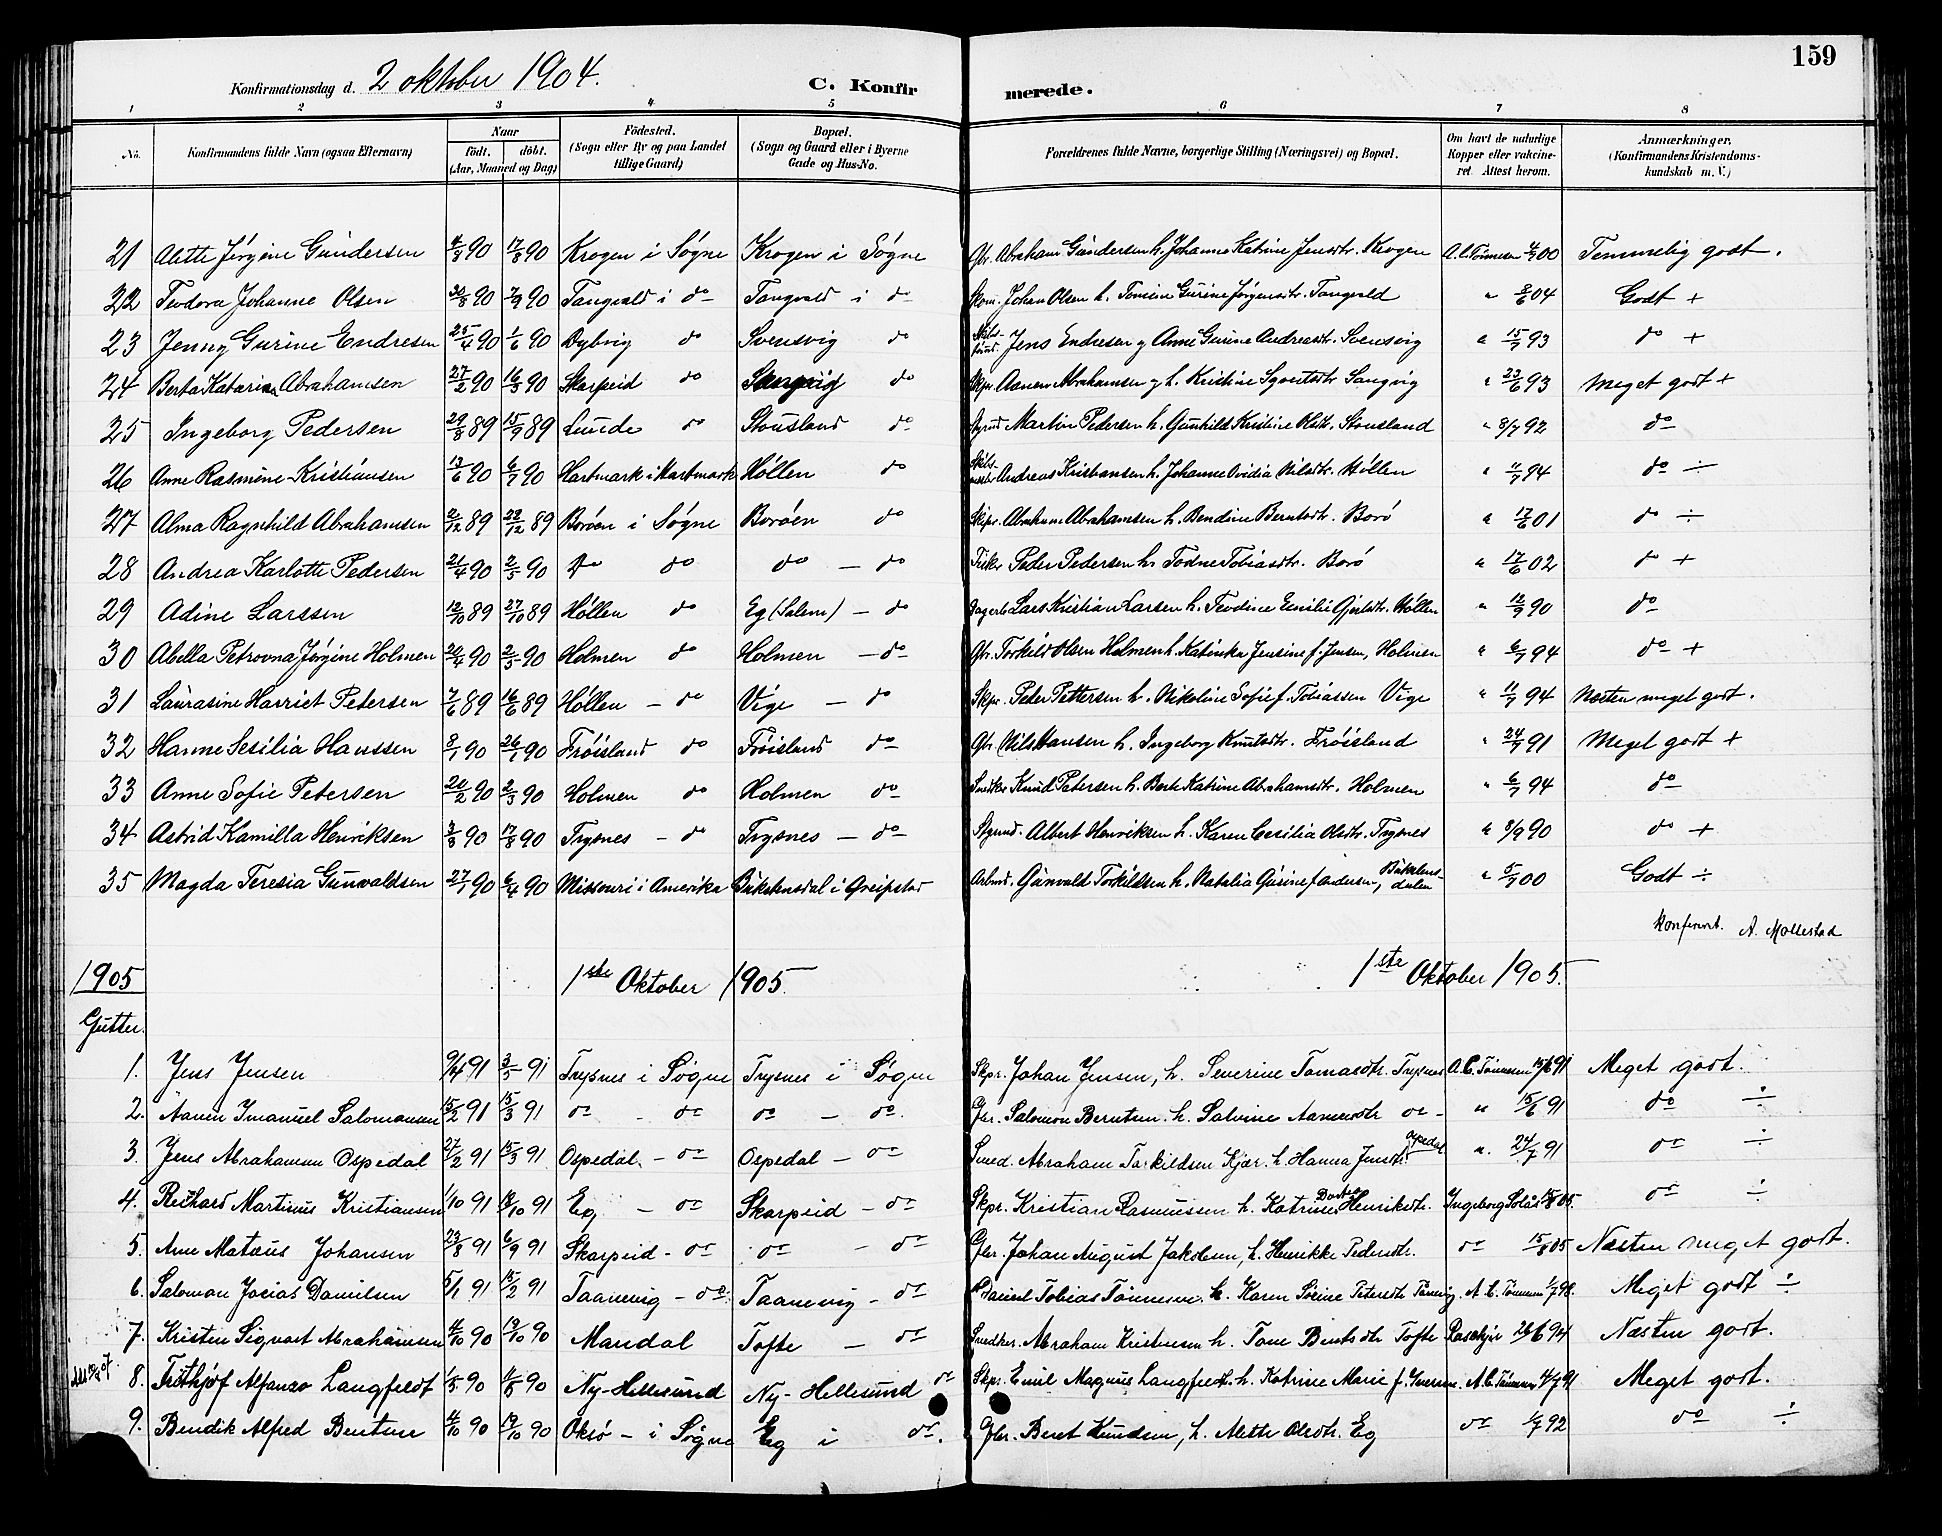 159
Konfirmationsdag d. 2 oktober 1904. C. Konfir merede.
1 2 3 4 5 6 7 8
No. Konfirmandens fulde Navn (ogsaa Efternavn) Naar födt. döbt. (Aar, Maaned og Dag) Födested. (Sogn eller By og paa Landet tillige Gaard) Bopæl. (Sogn og Gaard eller i Byerne Gade og Hus-No. Forældrenes fulde Navne, borgerlige Stilling (Næringsvei) og Bopæl. Om havt de naturlige Kopper eller vakcineret. Attest herom. Anmærkninger. (Konfirmandens Kristendomskundskab m. V.)
21 Alette Jørgine Gundersen 4/8 90 17/8 90 Krogen i Søgne Krogen i Søgne Gbr. Abraham Gundersen h. Johanne Katrine Jensdtr. Krogen A.C. Tønnesen 4/7 00 Temmelig godt.
22 Teodora Johanne Olsen 30/8 90 7/9 90 Tangvald i do Tangvald i do Skom. Johan Olsen h. Tomine Gurine Jørgensdtr. Tangvald " 8/6 04 Godt +
23 Jenny Gurine Endresen 25/4 90 1/6 90 Dybvig do Svensvig do Jens Endresen og Anne Gurine Andreasdtr. Svensvig " 15/7 93 do +
24 Berta Katarina Abrahamsen 27/2 90 16/3 90 Skarpeid do Sangvig do Skpr. Aanen Abrahamsen og h. Kristine Syvertsdtr Sangvig " 23/6 93 Meget godt +
25 Ingeborg Pedersen 29/8 89 15/9 89 Lunde do Stousland do Styrmd Martin Pedersen h. Gunhild Kristine Olsdtr. Stousland " 8/7 92 do
26 Anne Rasmine Kristiansen 13/6 90 6/7 90 Hartmark i Hartmark Høllen do Andreas Kristiansen h. Johanne Ovidia Nilsdtr. Høllen " 11/7 94 do ÷
27 Alma Ragnhild Abrahamsen 2/12 89 22/12 89 Borøen i Søgne Borøen do Skipr. Abraham Abrahamsen h. Bendine Berntsdtr. Borø " 17/6 01 do ÷
28 Andrea Karlotte Pedersen 21/4 90 2/5 90 Do do do - do Fisker Peder Pedersen h. Todne Tobiasdtr. Borø " 17/6 02 do +
29 Adine Larssen 12/10 89 27/10 89 Høllen do Eg (Salem) - do Dagarb Lars Kristian Larsen h. Teodine Emilie Gjertsdtr. Høllen " 12/9 90 do
30 Abella Petrovna Jørgine Holmen 20/4 90 2/5 90 Holmen do Holmen - do Gbr. Torkild Olsen Holmen h. Katinka Jensine f. Jensen, Holmen " 6/7 94 do +
31 Laurasine Harriet Petersen 7/6 89 16/6 89 Høllen - do Vige - do Skpr. Peder Pettersen h. Nikoline Sofie f. Tobiassen Vige " 11/7 94 Næsten meget godt.
32 Hanne Sesilia Hanssen 8/1 90 26/1 90 Frøisland do Frøisland do Gbr Nils Hansen h. Ingeborg Knutsdtr. Frøisland " 24/7 91 Meget godt +
33 Anne Sofie Petersen 20/2 90 2/3 90 Holmen do Holmen do Snedker Knud Petersen h. Berte Katrine Abrahamsdtr. Holmen " 6/7 94 do
34 Astrid Kamilla Henriksen 3/8 90 17/8 90 Trysnes - do Trysnes - do Styrmd. Albert Henriksen h. Karen Cecilia Olsdtr. Trysnes " 8/9 90 do +
35 Magda Teresia Gunvaldsen 27/1 90 6/4 90 Missouri i Amerika Bukstensdal i Greipstad Arbmd. Gunvald Torkildsen h. Natalia Gusine f Andersen, Bukstensdalen " 5/7 00 Godt ÷
Konfereret. A. Mollestad
1905 1ste Oktober 1905 1ste Oktober 1905.
Gutter.
1. Jens Jensen 9/4 91 3/5 91 Trysnes i Søgne Trysnes i Søgne Skpr. Johan Jensen, h. Severine Tomasdtr. Trysnes A.C. Tønnesen 15/6 91 Meget godt. ÷
2. Aanen Imanuel Salomonsen 15/2 91 15/3 91 do - do do - do. Gbr. Salomon Berntsen h. Salvine Aanensdtr do - " 15/6 91 do ÷
3. Jens Abrahamsen Ospedal 27/2 91 15/3 91 Ospedal - do Ospedal - do Smed. Abraham Tarkildsen Kjær. h. Hanna Jensdtr. Ospedal ". 24/7 91 do ÷
4. Reichard Martinius Kristiansen 1/10 91 18/10 91 Eg - do Skarpeid - do Skpr. Kristian Rasmussen h. Katrine Dortea Henriksdtr. Ingeborg Solås 15/8 05. do ÷
5. Arne Matæus Johansen 23/8 91 6/9 91 Skarpeid - do do - do Gbr. Johan August Jakobsen, h. Henrikke Pedersdtr. do 15/8 05 Næsten meget godt.
6. Salomon Josias Danielsen 5/1 91 15/2 91 Taanevig - do Taanevig - do Daniel Tobias Tønnesen h. Karen Sørine Petersdtr Tånevig. A.C. Tønnesen 1/7 98. Meget godt ÷
7. Kristen Sigvart Abrahamsen 4/10 90 19/10 90 Mandal Tofte - do Snedker. Abraham Kristensen h. Tone Berntsdtr Tofte 26/6 94 Næsten godt.
8. Fridthjof Alfanzo Langfeldt 1/5 90 4/8 90 Ny-Hellesund Ny-Hellesund do Skpr. Emil Magnus Langfeldt. h. Katrine Marie f. Iversen. A.C. Tønnesen 4/7 91 Meget godt.
9. Bendik Alfred Bentsen 4/10 90 19/10 90 Oksø - i Søgne Eg i do. Gbr. Bent Knudsen, h. Alette Olsdtr. Eg do 1/7 92 do ÷